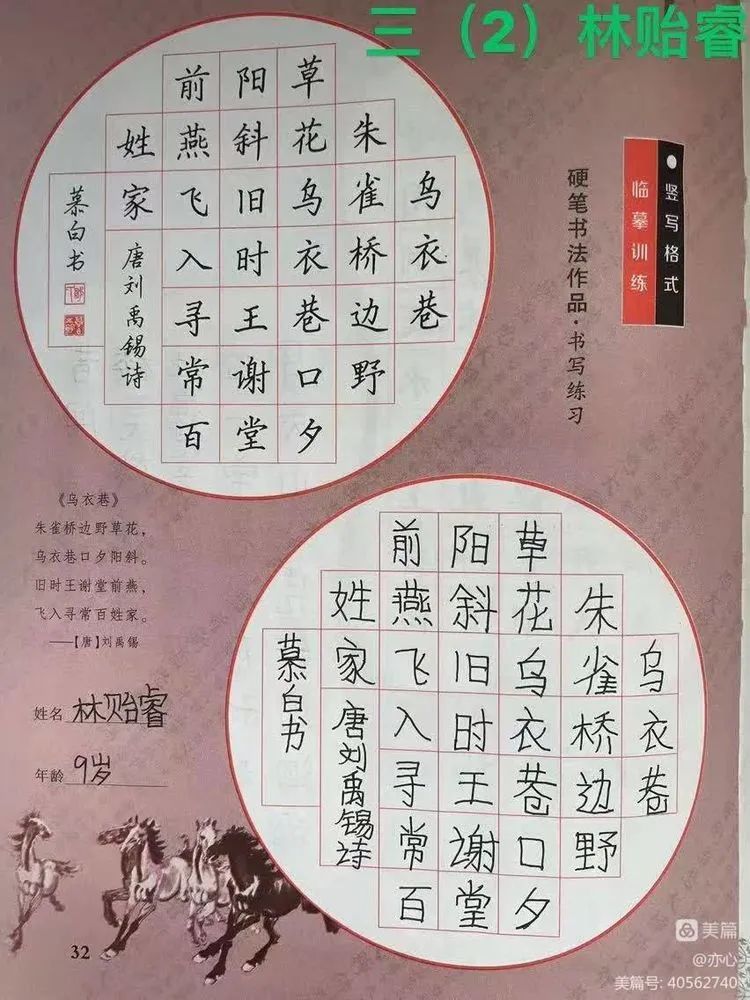 三（2）林贻睿
竖写格式
临摹训练
硬笔书法作品·书写练习
乌衣巷
朱雀桥边野
草花乌衣巷口夕
阳斜旧时王谢堂
前燕飞入寻常百
姓家唐刘禹锡诗
慕白书
《乌衣巷》
朱雀桥边野草花，
乌衣巷口夕阳斜。
旧时王谢堂前燕，
飞入寻常百姓家。
——【唐】刘禹锡
姓名 林贻睿
年龄 9岁
乌衣巷
朱雀桥边野
草花乌衣巷口夕
阳斜旧时王谢堂
前燕飞入寻常百
姓家唐刘禹锡诗
慕白书
32
美篇
@亦心
美篇号: 40562740